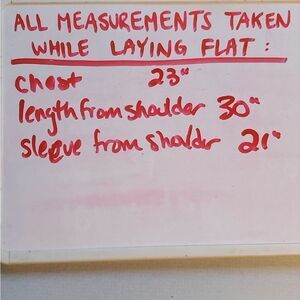 ALL MEASUREMENTS TAKEN
WHILE LAYING FLAT :
chest 23"
length from shoulder 30"
sleeve from shoulder 21"